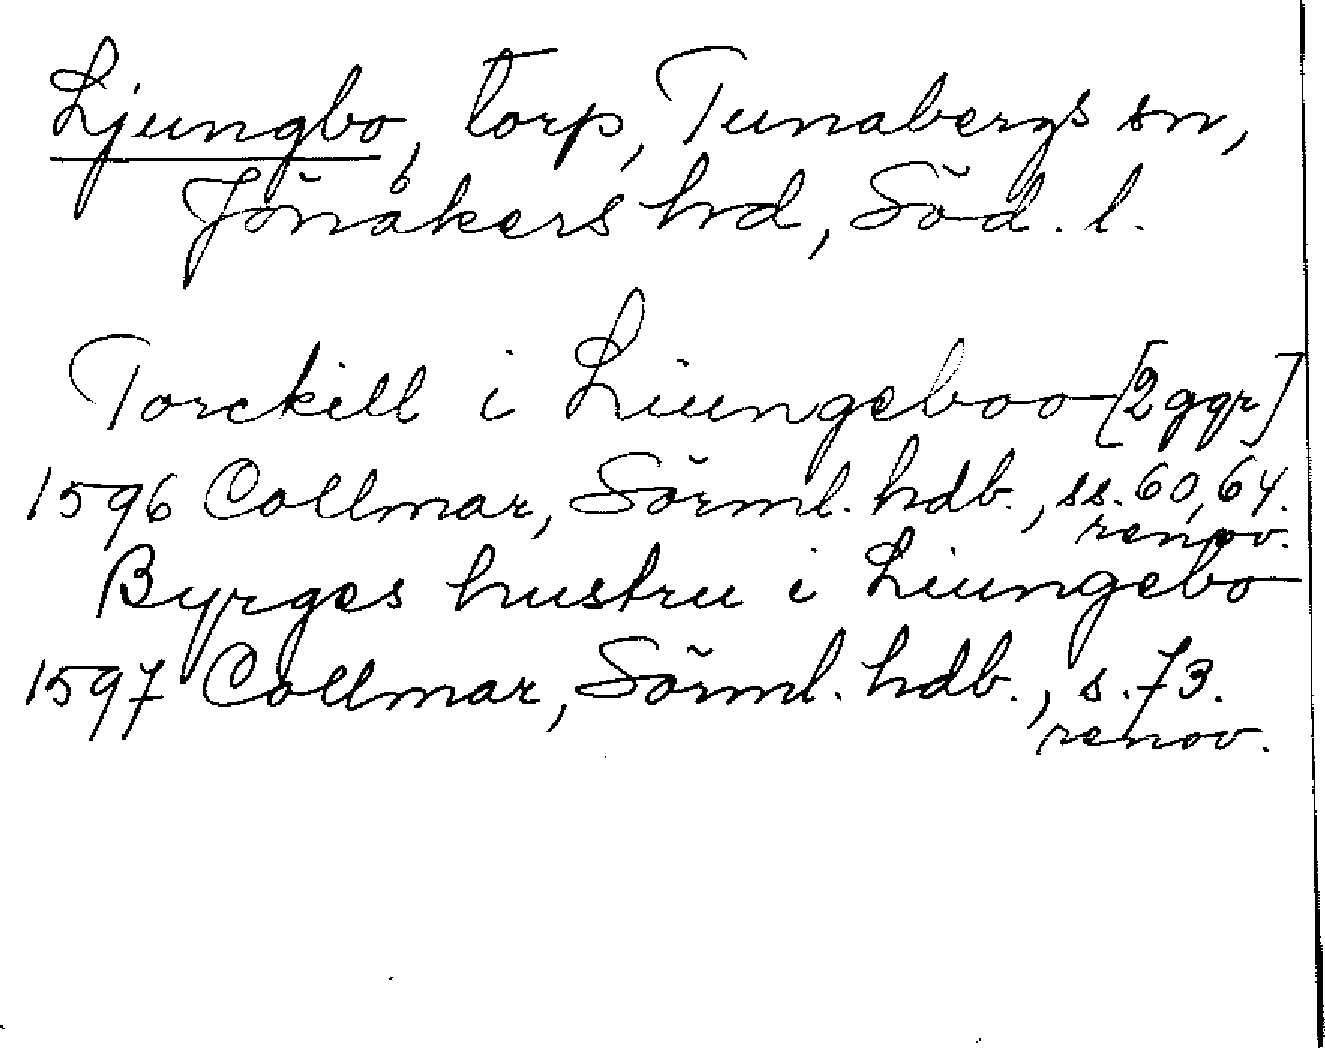 Ljungbo, torp, Tunabergs sn,
Jönåkers hd, Söd. l.
Torckill i Liungeboo [2 ggr]
1596 Collmar, Sörml. hdb., ss. 60, 64.
renov.
Byrges hustru i Liungebo
1597 Collmar, Sörml. hdb., s. 73.
renov.